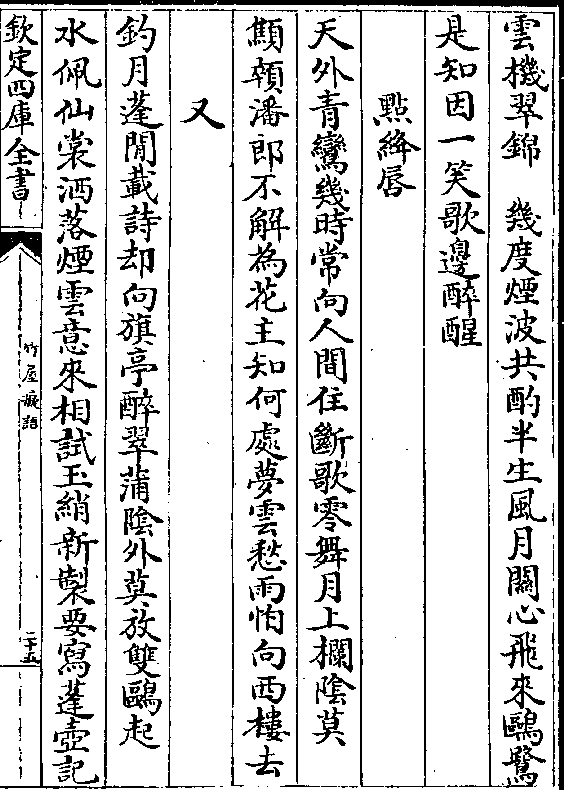 雲機翠錦　幾度煙波共酌半生風月關心飛來鷗鷺
是知因一笑歌邊醉醒
點絳唇
天外青鸞幾時常向人間住斷歌零舞月上欄陰莫
顦顇潘郎不解為花主知何處夢雲愁雨怕向西樓去
又
釣月蓬閒載詩却向旗亭醉翠蒲陰外莫放雙鷗起
水佩仙裳洒落煙雲意來相試玉綃新製要寫蓬壺記
欽定四庫全書
竹屋癡語
二十五